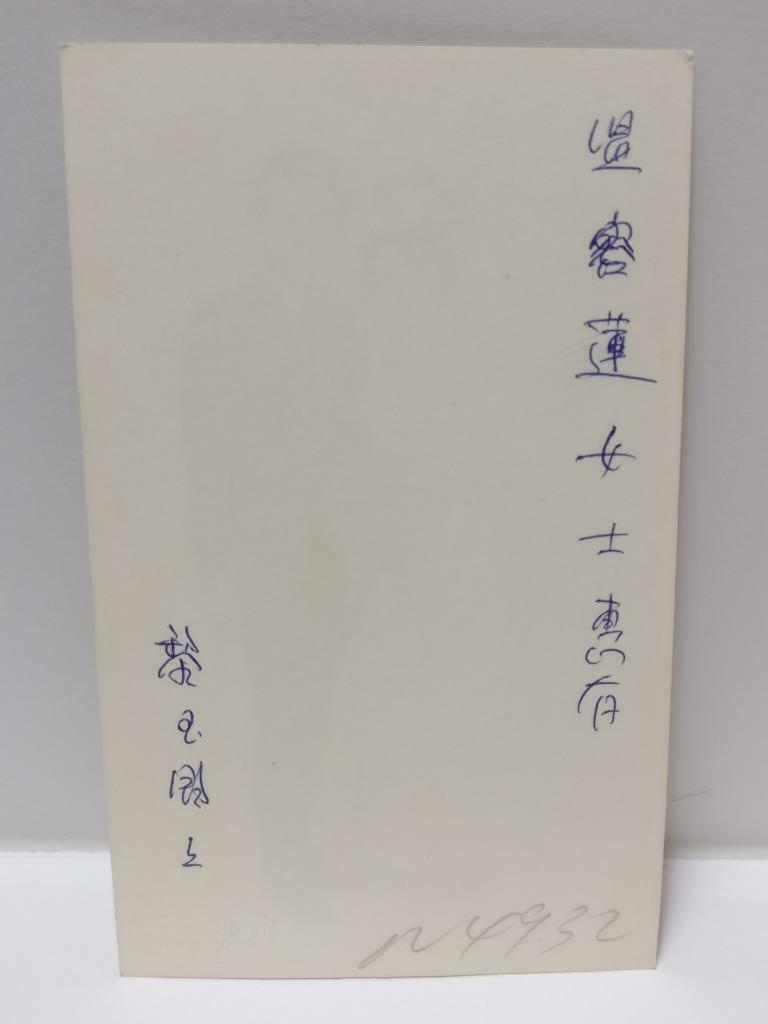 温蓮女士惠存
黎玉上
N4932